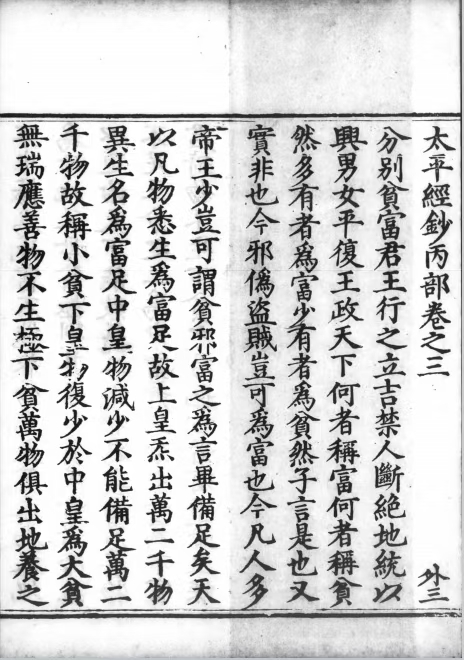 太平經鈔丙部卷之三　外三
分别貧富君王行之立吉禁人斷絶地統以
興男女平復王政天下何者稱富何者稱貧
然多有者爲富少有者爲貧然子言是也又
實非也今邪僞盜賊豈可爲富也今凡人多
帝王少豈可謂貧邪富之爲言畢備足矣天
以凡物悉生爲富足故上皇炁出萬二千物
異生名爲富足中皇物減少不能備足萬二
千物故稱小貧下皇物復少於中皇爲大貧
無瑞應善物不生極下貧萬物俱出地養之